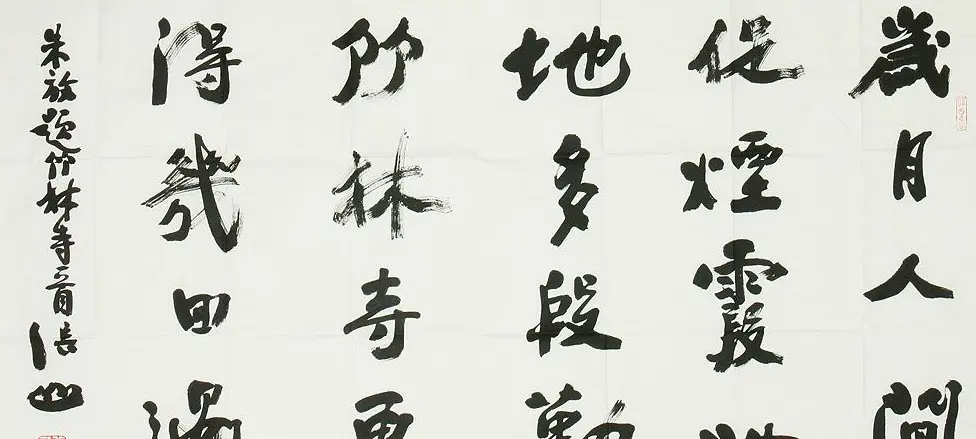 歲月人間
促煙霞此
地多殷勤
竹林寺更
得幾回過
朱放題竹林寺一首